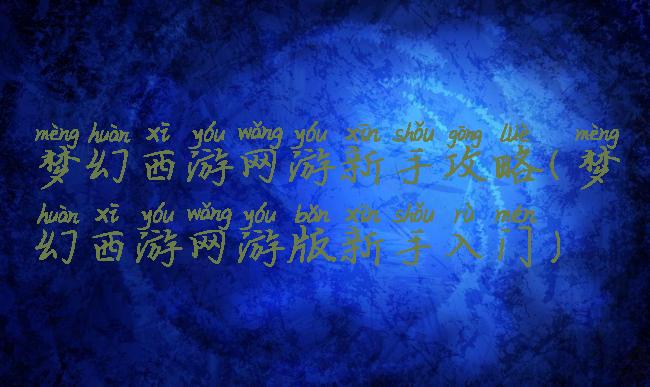 mèng huàn xī yóu wǎng yóu xīn shǒu gōng lüè mèng
梦幻西游网游新手攻略(梦
huàn xī yóu wǎng yóu bǎn xīn shǒu rù mén
幻西游网游版新手入门)